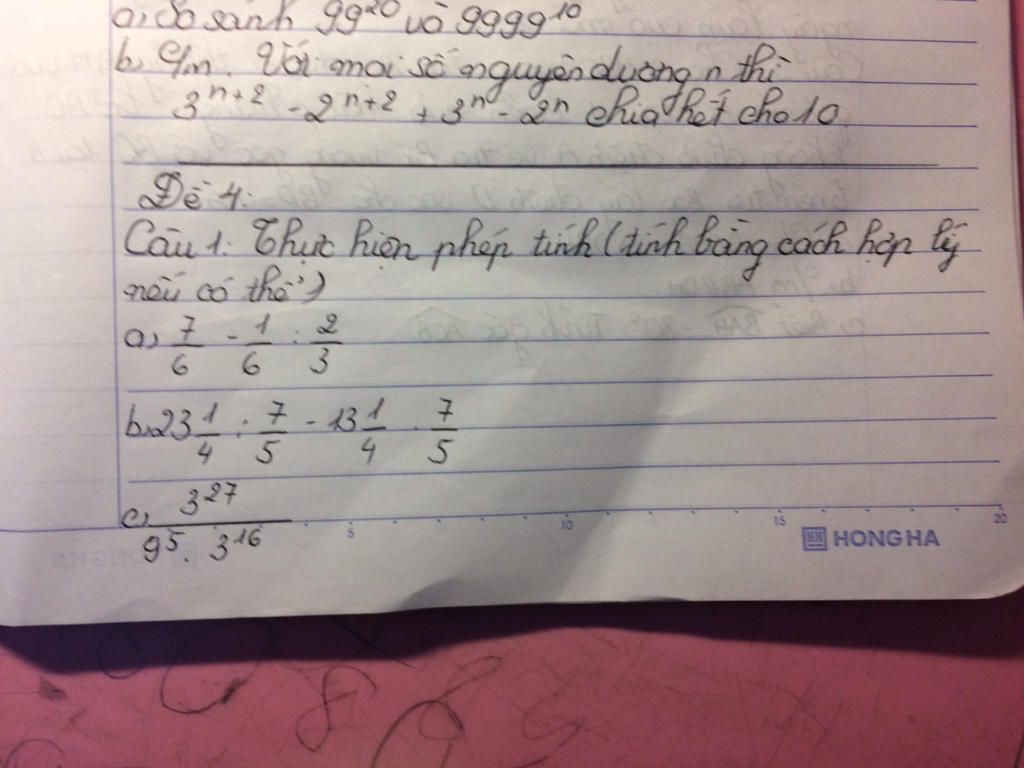 a, So sánh 99²⁰ và 9999¹⁰
b, C/m. Với mọi số nguyên dương n thì
3ⁿ⁺² - 2ⁿ⁺² + 3ⁿ - 2ⁿ chia hết cho 10
Đề 4:
Câu 1: Thực hiện phép tính (tính bằng cách hợp lý
nếu có thể)
a, 7/6 - 1/6 : 2/3
b, 23 1/4 : 7/5 - 13 1/4 . 7/5
c, 3²⁷ / 9⁵ . 3¹⁶
5 10 15 20
HH HONG HA